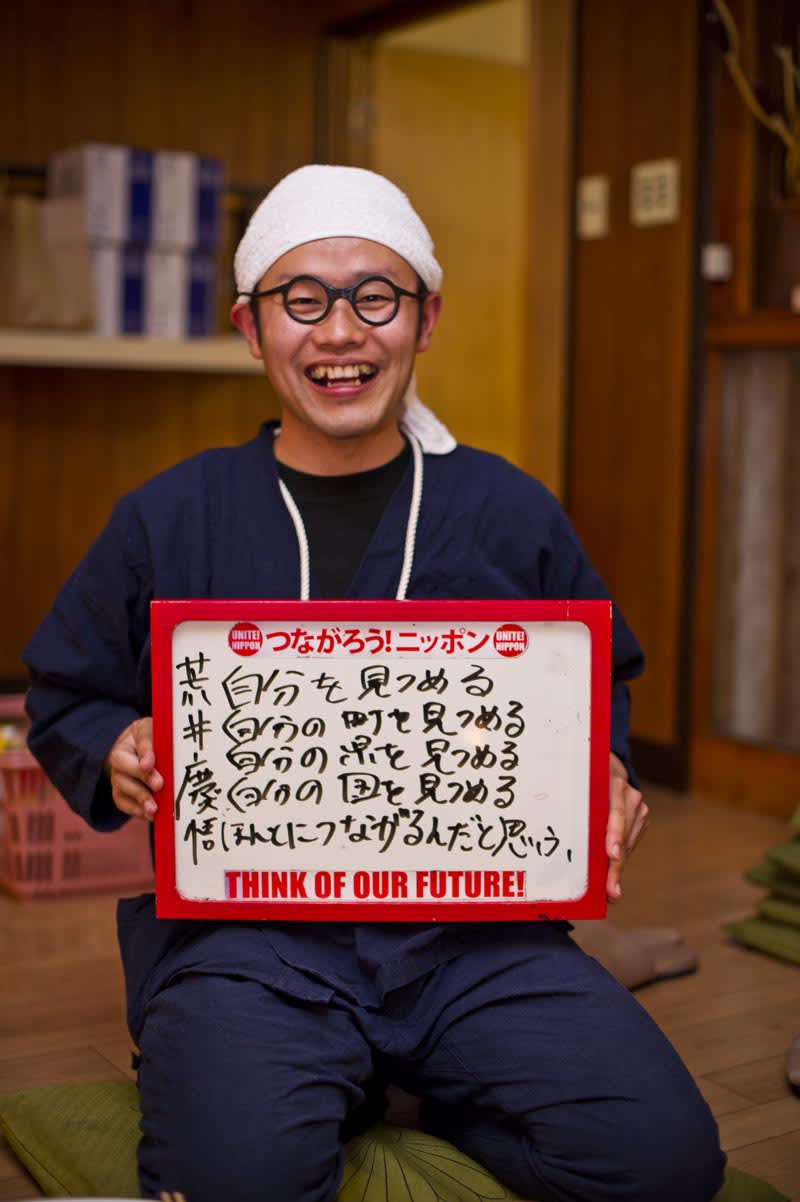 UNITE! NIPPON つながろう!ニッポン UNITE! NIPPON
荒井慶悟
自分を見つめる
自分の町を見つめる
自分の県を見つめる
自分の国を見つめる
ほんとにつながるんだと思う、
THINK OF OUR FUTURE!